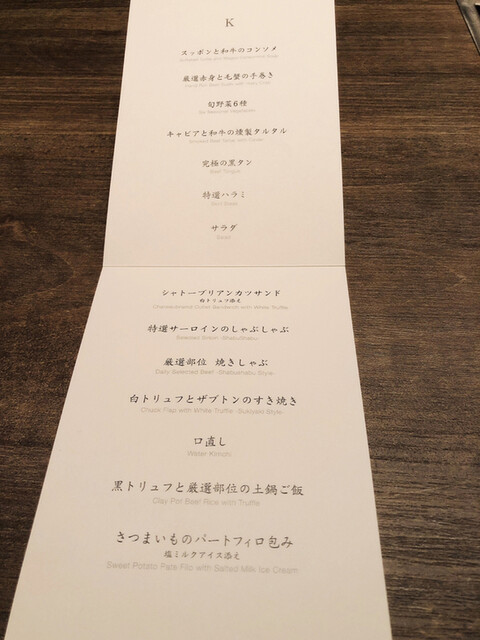 K
スッポンと和牛のコンソメ
厳選赤身と毛蟹の手巻き
旬野菜6種
キャビアと和牛の燻製タルタル
究極の黒タン
Beef Tongue
特選ハラミ
サラダ
Salad
シャトーブリアンカツサンド
白トリュフ添え
Chateaubriand Cutlet Sandwich with White Truffle
特選サーロインのしゃぶしゃぶ
Selected Sirloin -ShabuShabu-
厳選部位 焼きしゃぶ
Daily Selected Beef -Shabushabu Style-
白トリュフとザブトンのすき焼き
Chuck Flap with White Truffle -Sukiyaki Style-
口直し
Water Kimchi
黒トリュフと厳選部位の土鍋ご飯
Clay Pot Beef Rice with Truffle
さつまいものパートフィロ包み
塩ミルクアイス添え
Sweet Potato Pate Filo with Salted Milk Ice Cream